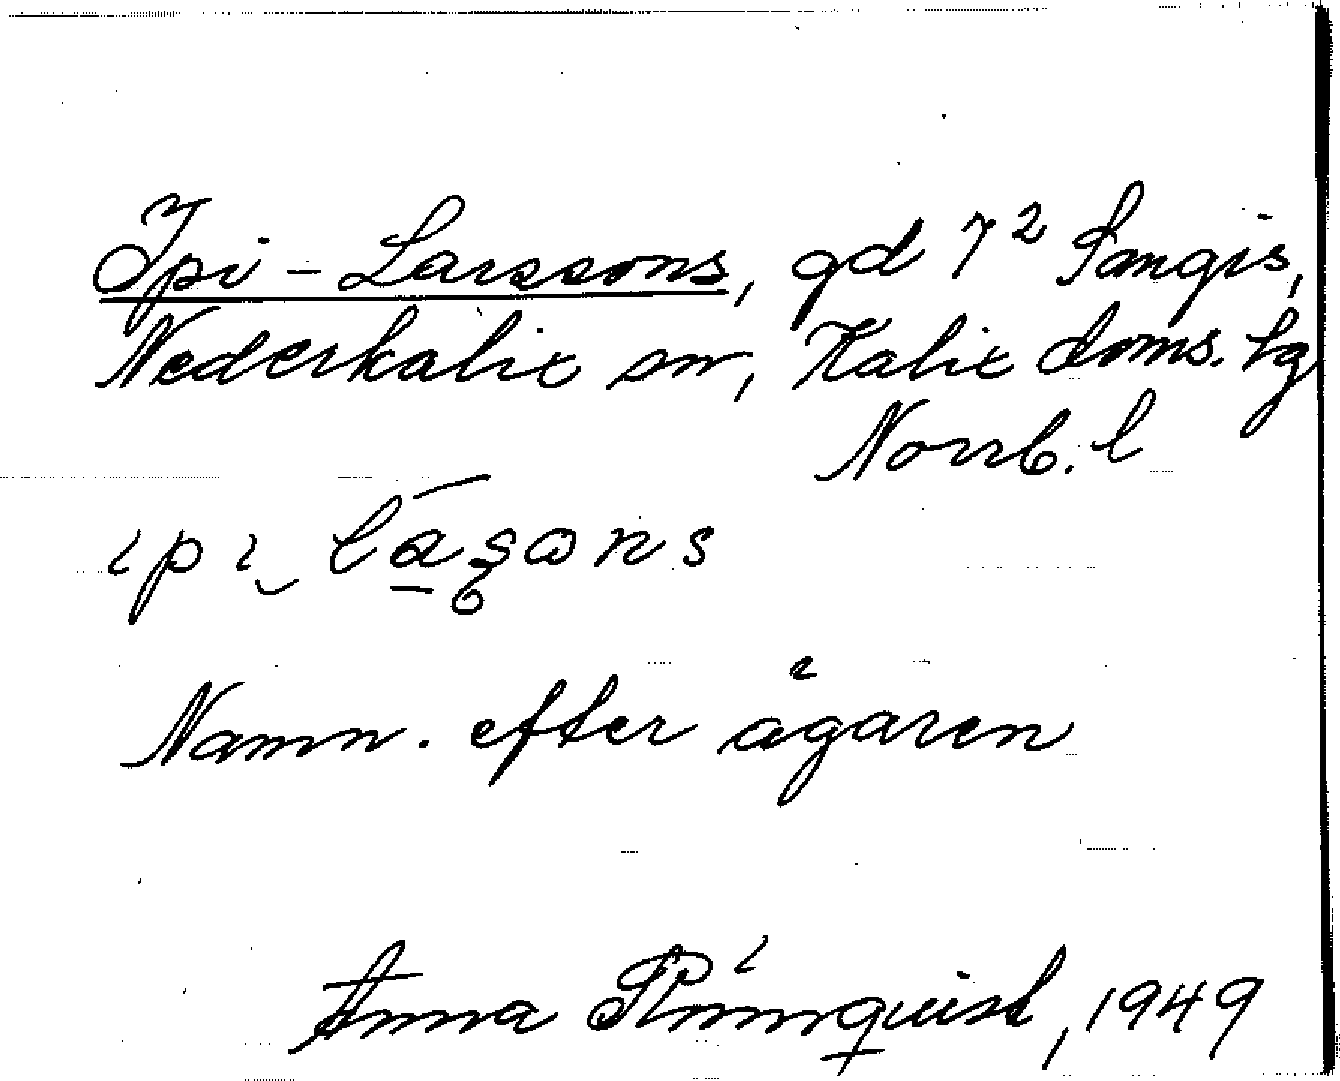 Ipi-Larssons, gd 7² Sangis,
Nederkalix sn, Kalix doms. lg
Norrb. l
Namn. efter ägaren
Anna Rönnquist, 1949